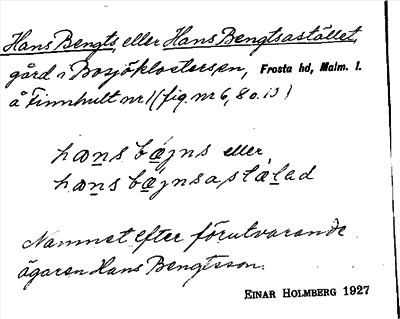 Hans Bengts, eller Hans Bengtsastället,
gård i Bosjöklosters sn, Frosta hd, Malm. l.
å Finnhult nr 1 (fig. nr 6, 8 o. 13)
hans bæjns eller
hans bæjnsastælad
Namnet efter förutvarande
ägaren Hans Bengtsson.
EINAR HOLMBERG 1927